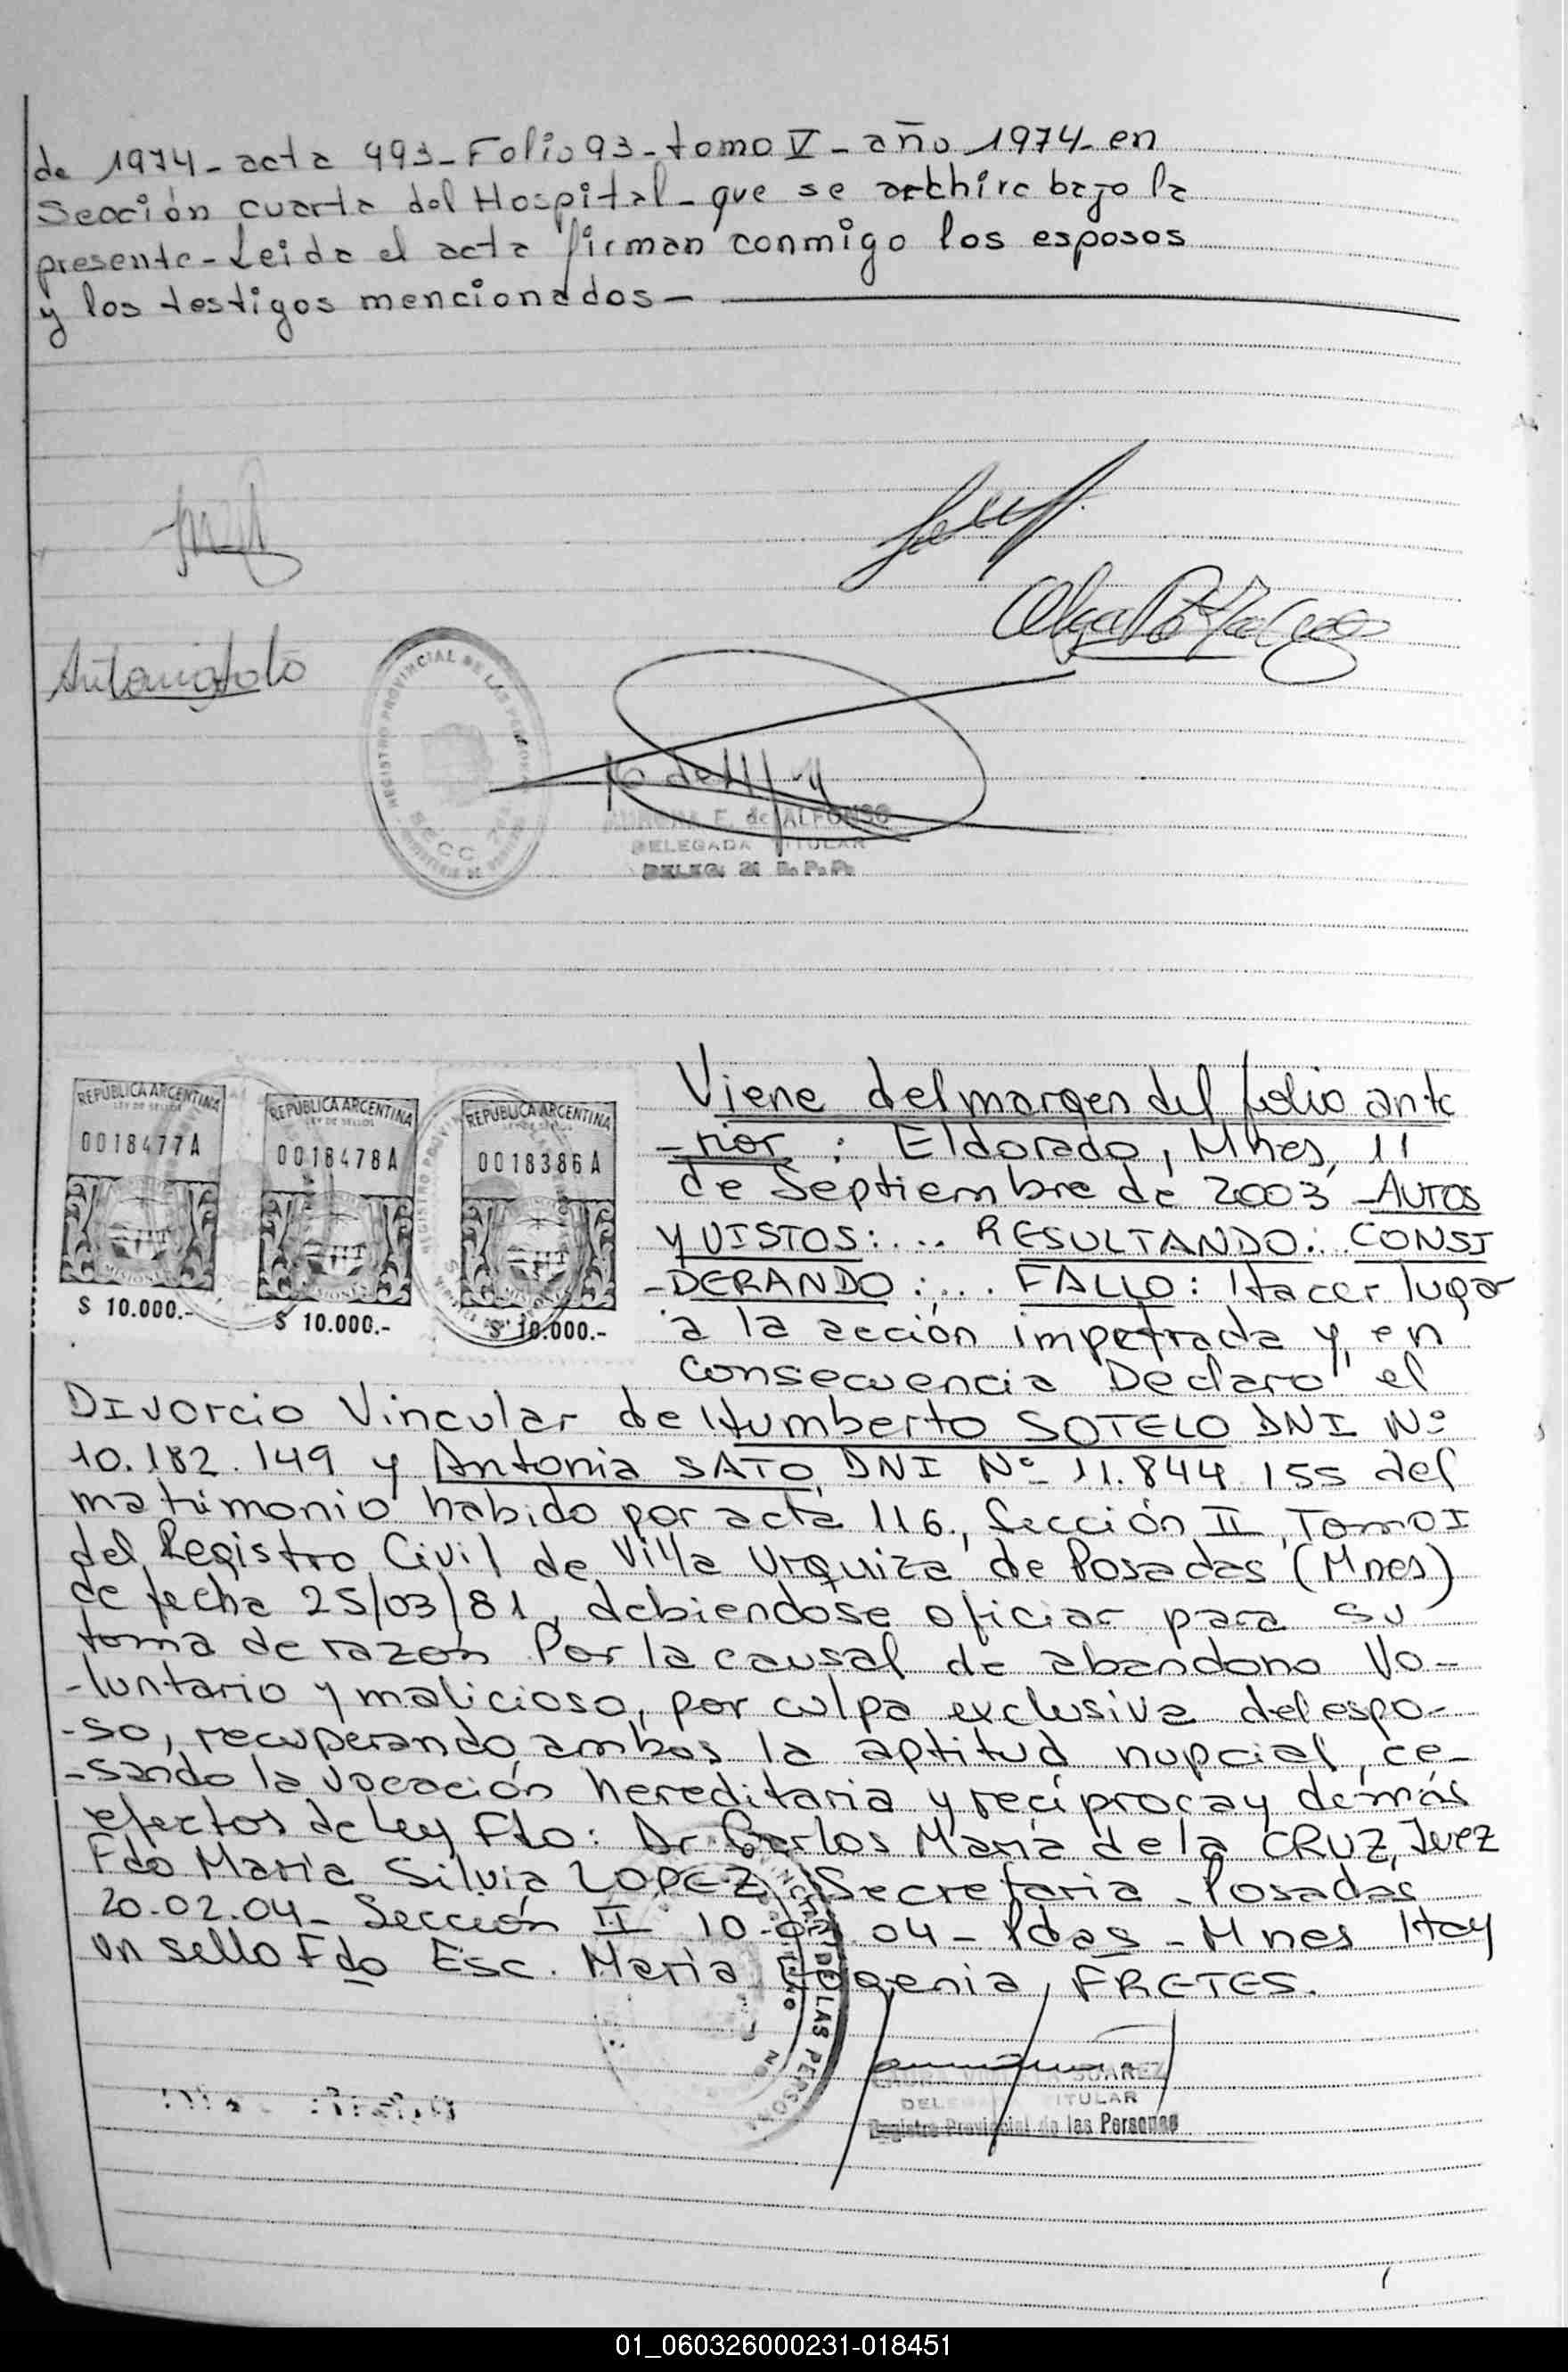 de 1974- acta 493- Folio 93- tomo V - año 1974- en
Sección cuarta del Hospital- que se archiva bajo la
presente- Leida el acta firman conmigo los esposos
y los testigos mencionados-
REGISTRO PROVINCIAL DE LAS
SECC.
E. de ALFONSO
DELEGADA TITULAR
DELEG. 21 R. P. P.
REPÚBLICA ARGENTINA
LEY DE SELLOS
0018477A
MISIONES
$ 10.000.-
REPÚBLICA ARGENTINA
LEY DE SELLOS
0018478A
MISIONES
$ 10.000.-
REPÚBLICA ARGENTINA
LEY DE SELLOS
0018386A
MISIONES
$ 10.000.-
Viene del margen del folio ante
-rior : Eldorado, Mnes, 11
de Septiembre de 2003 -AUTOS
Y VISTOS:... RESULTANDO:.. CONSI
-DERANDO:... FALLO: Hacer lugar
a la acción impetrada y, en
consecuencia Declaro el
DIVORCIO Vincular de Humberto SOTELO DNI Nº
10.182.149 y Antonia SATO, DNI Nº 11.844.155 del
matrimonio habido por acta 116, Sección II, Tomo I
del Registro Civil de Villa Urquiza de Posadas (Mnes)
de fecha 25/03/81, debiendose oficiar para su
toma de razón Por la causal de abandono Vo-
-luntario y malicioso, por culpa exclusiva del espo-
-so, recuperando ambos la aptitud nupcial, ce-
-sando la vocación hereditaria y recíproca y demás
efectos de Ley Fdo: Dr Carlos María de la CRUZ, Juez
Fdo María Silvia LOPEZ Secretaria - Posadas
20-02-04- Sección II 10-03-04- Pdas - Mnes Hay
un sello Fdo Esc. María Eugenia FRETES.
DE LAS PERSONAS
SUAREZ
TITULAR
Registro Provincial de las Personas
01_060326000231-018451